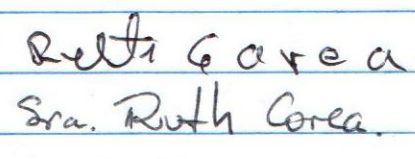 Ruth Corea
Sra. Ruth Corea.